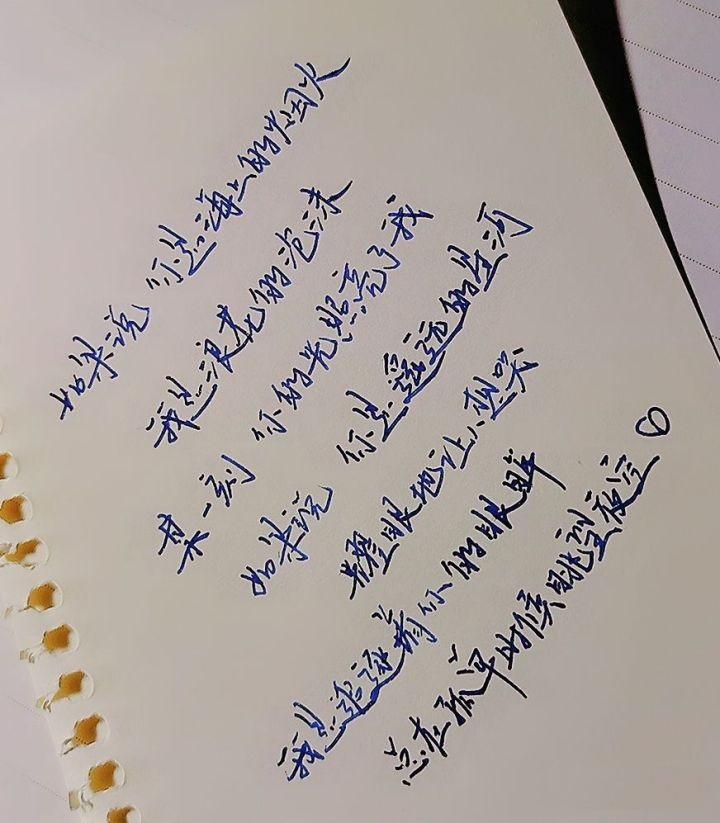 如果说 你是海上的烟火
我是浪花的泡沫
某一刻 你的光照亮了我
如果说 你是遥远的星河
耀眼地让人想哭
我是追逐着你的眼眸
总在孤单时候眺望夜空